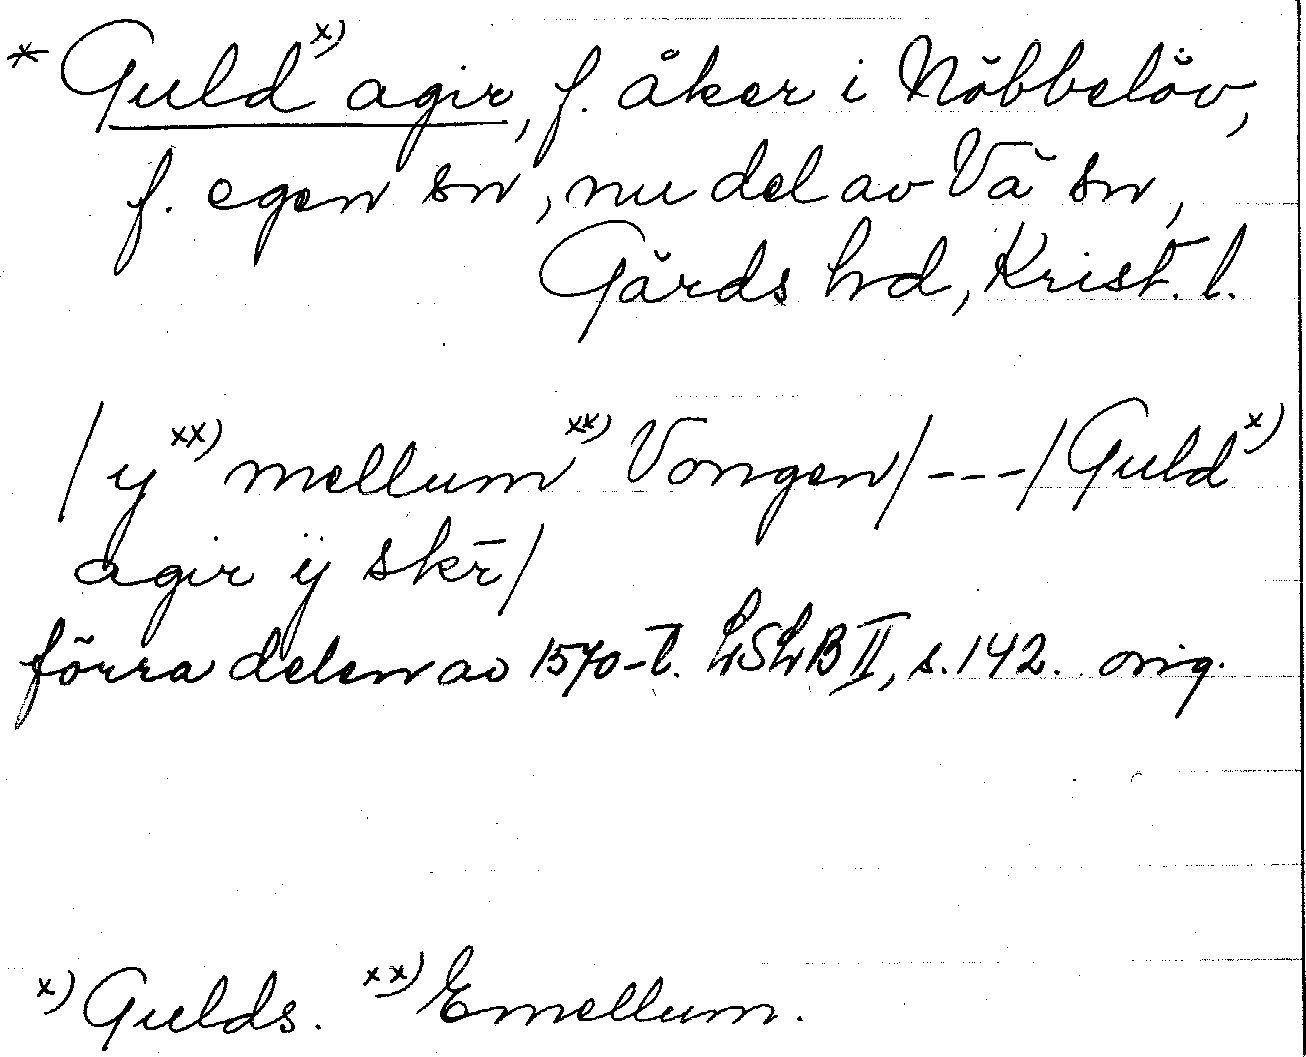 * Guld x) agir, f. åker i Nöbbelöv,
f. egen sn, nu del av Vä sn,
Gärds hd, Krist. l.
/ y xx) mellum xx) Vongen/---/Guld x)
agir ÿ skr̄/
förra delen av 1570-t. LSLB II, s. 142. orig.
x) Gulds. xx) Emellum.